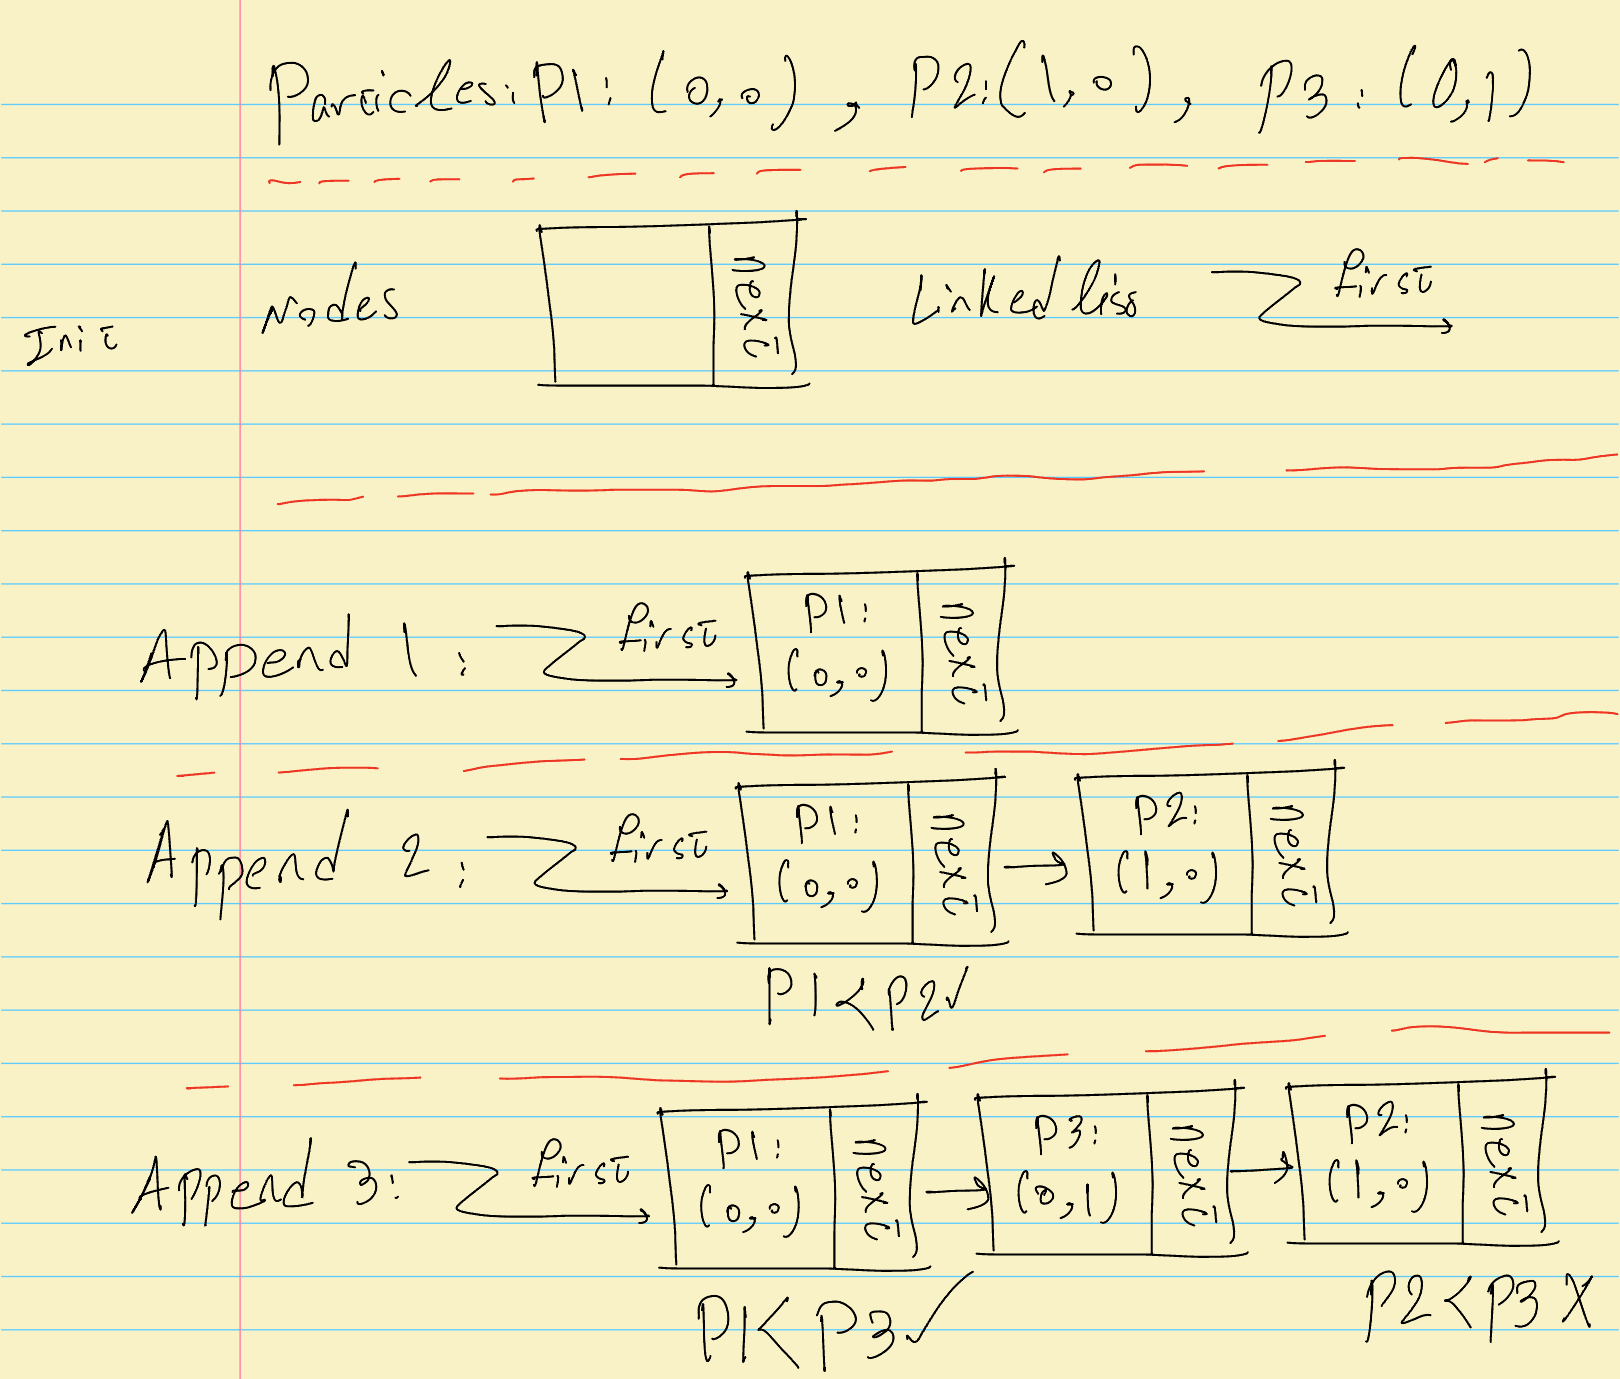 Particles: P1: (0,0), P2: (1,0), P3: (0,1)
Init Nodes next Linked liss first
Append 1: first P1: (0,0) next
Append 2: first P1: (0,0) next P2: (1,0) next
P1<P2✓
Append 3: first P1: (0,0) next P3: (0,1) next P2: (1,0) next
P1<P3✓ P2<P3 X